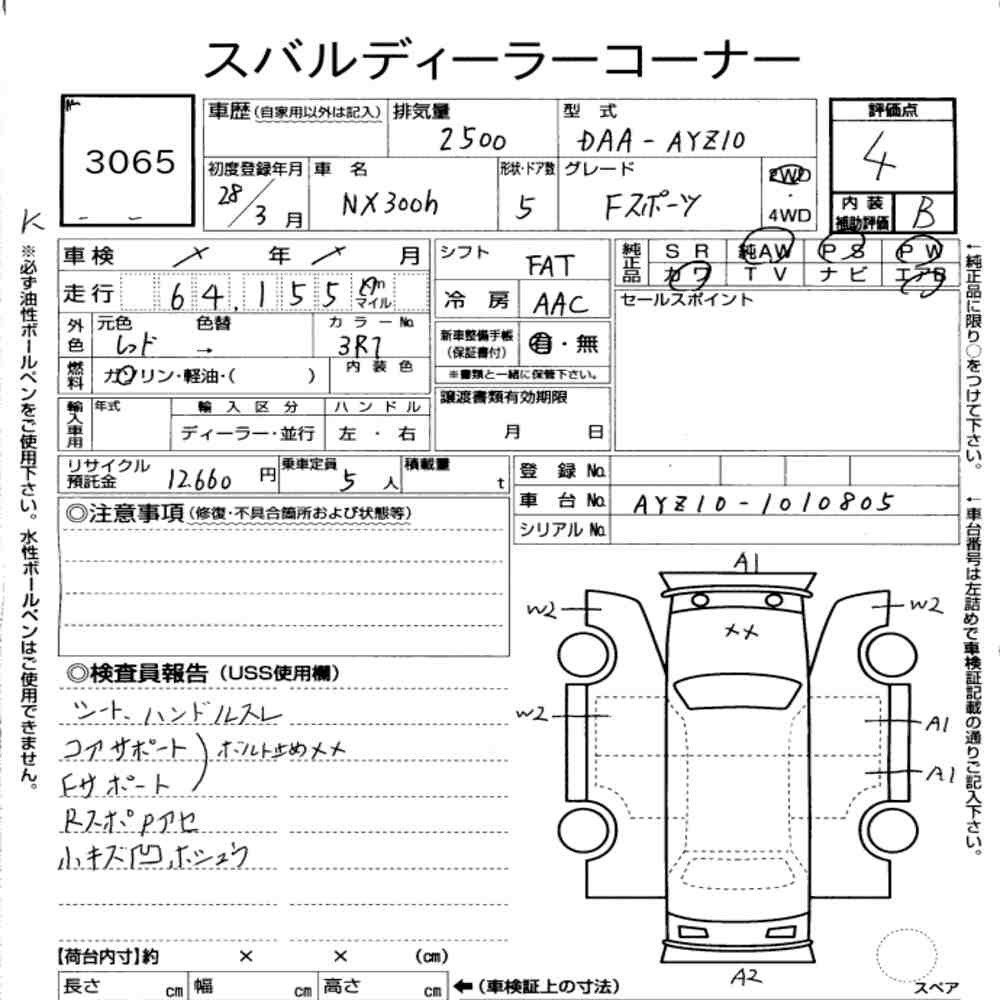 スバルディーラーコーナー
3065
車歴(自家用以外は記入)
排気量
2500
型 式
DAA-AYZ10
評価点
4
内装
補助評価
B
初度登録年月
28/3月
車 名
NX300h
形状・ドア数
5
グレード
Fスポーツ
2WD
・
4WD
K
車検 / 年 / 月
走行 64,155 Km
マイル
外色
元色
レッド
色替
→
カラーNo.
3R1
燃料
ガソリン・軽油・( )
内装色
輸入車用
年式
輸入区分
ディーラー・並行
ハンドル
左・右
シフト
FAT
冷房
AAC
新車整備手帳
(保証書付)
有・無
※書類と一緒に保管下さい。
譲渡書類有効期限
月 日
純正品
SR 純AW PS PW
カワ TV ナビ エアB
セールスポイント
リサイクル
預託金
12,660 円
乗車定員
5 人
積載量
t
登録No.
車台No. AYZ10-1010805
シリアルNo.
◎注意事項(修復・不具合箇所および状態等)
◎検査員報告(USS使用欄)
シート、ハンドルスレ
コアサポート
Fサポート
ボルト止め××
RスポPアセ
小キズ凹、ホシュウ
A1
W2
W2
××
W2
A1
A1
A2
スペア
【荷台内寸】約 × × (cm)
長さ cm 幅 cm 高さ cm ←(車検証上の寸法)
※必ず油性ボールペンをご使用下さい。水性ボールペンはご使用できません。
←純正品に限り○をつけて下さい。
←車台番号は左詰めで車検証記載の通りご記入下さい。